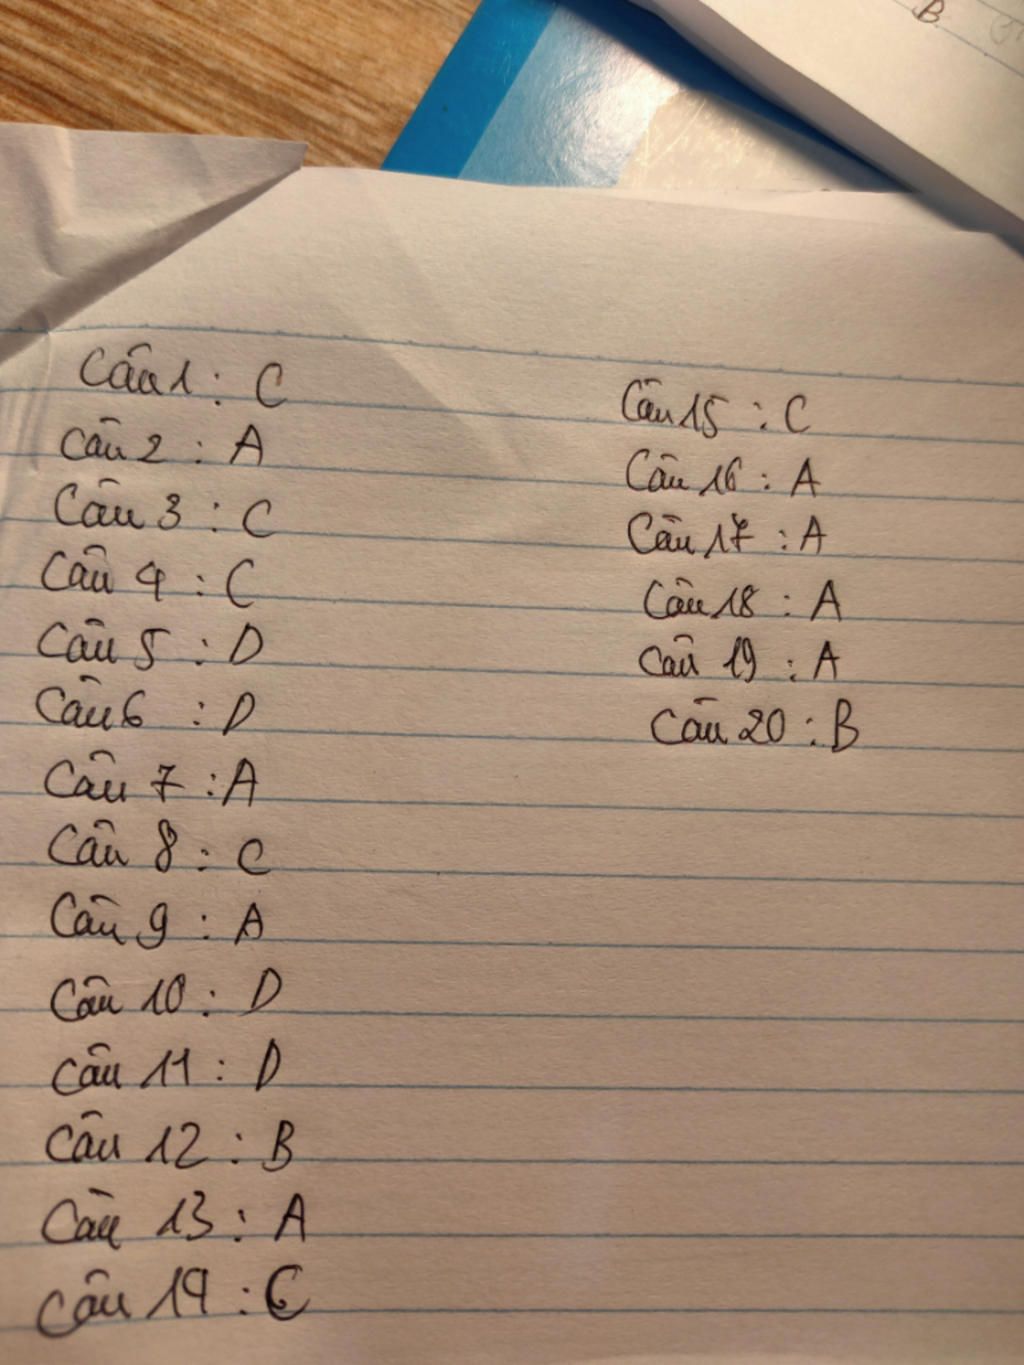 B.
Câu 1 : C
Câu 2 : A
Câu 3 : C
Câu 4 : C
Câu 5 : D
Câu 6 : D
Câu 7 : A
Câu 8 : C
Câu 9 : A
Câu 10 : D
Câu 11 : D
Câu 12 : B
Câu 13 : A
Câu 14 : C
Câu 15 : C
Câu 16 : A
Câu 17 : A
Câu 18 : A
Câu 19 : A
Câu 20 : B